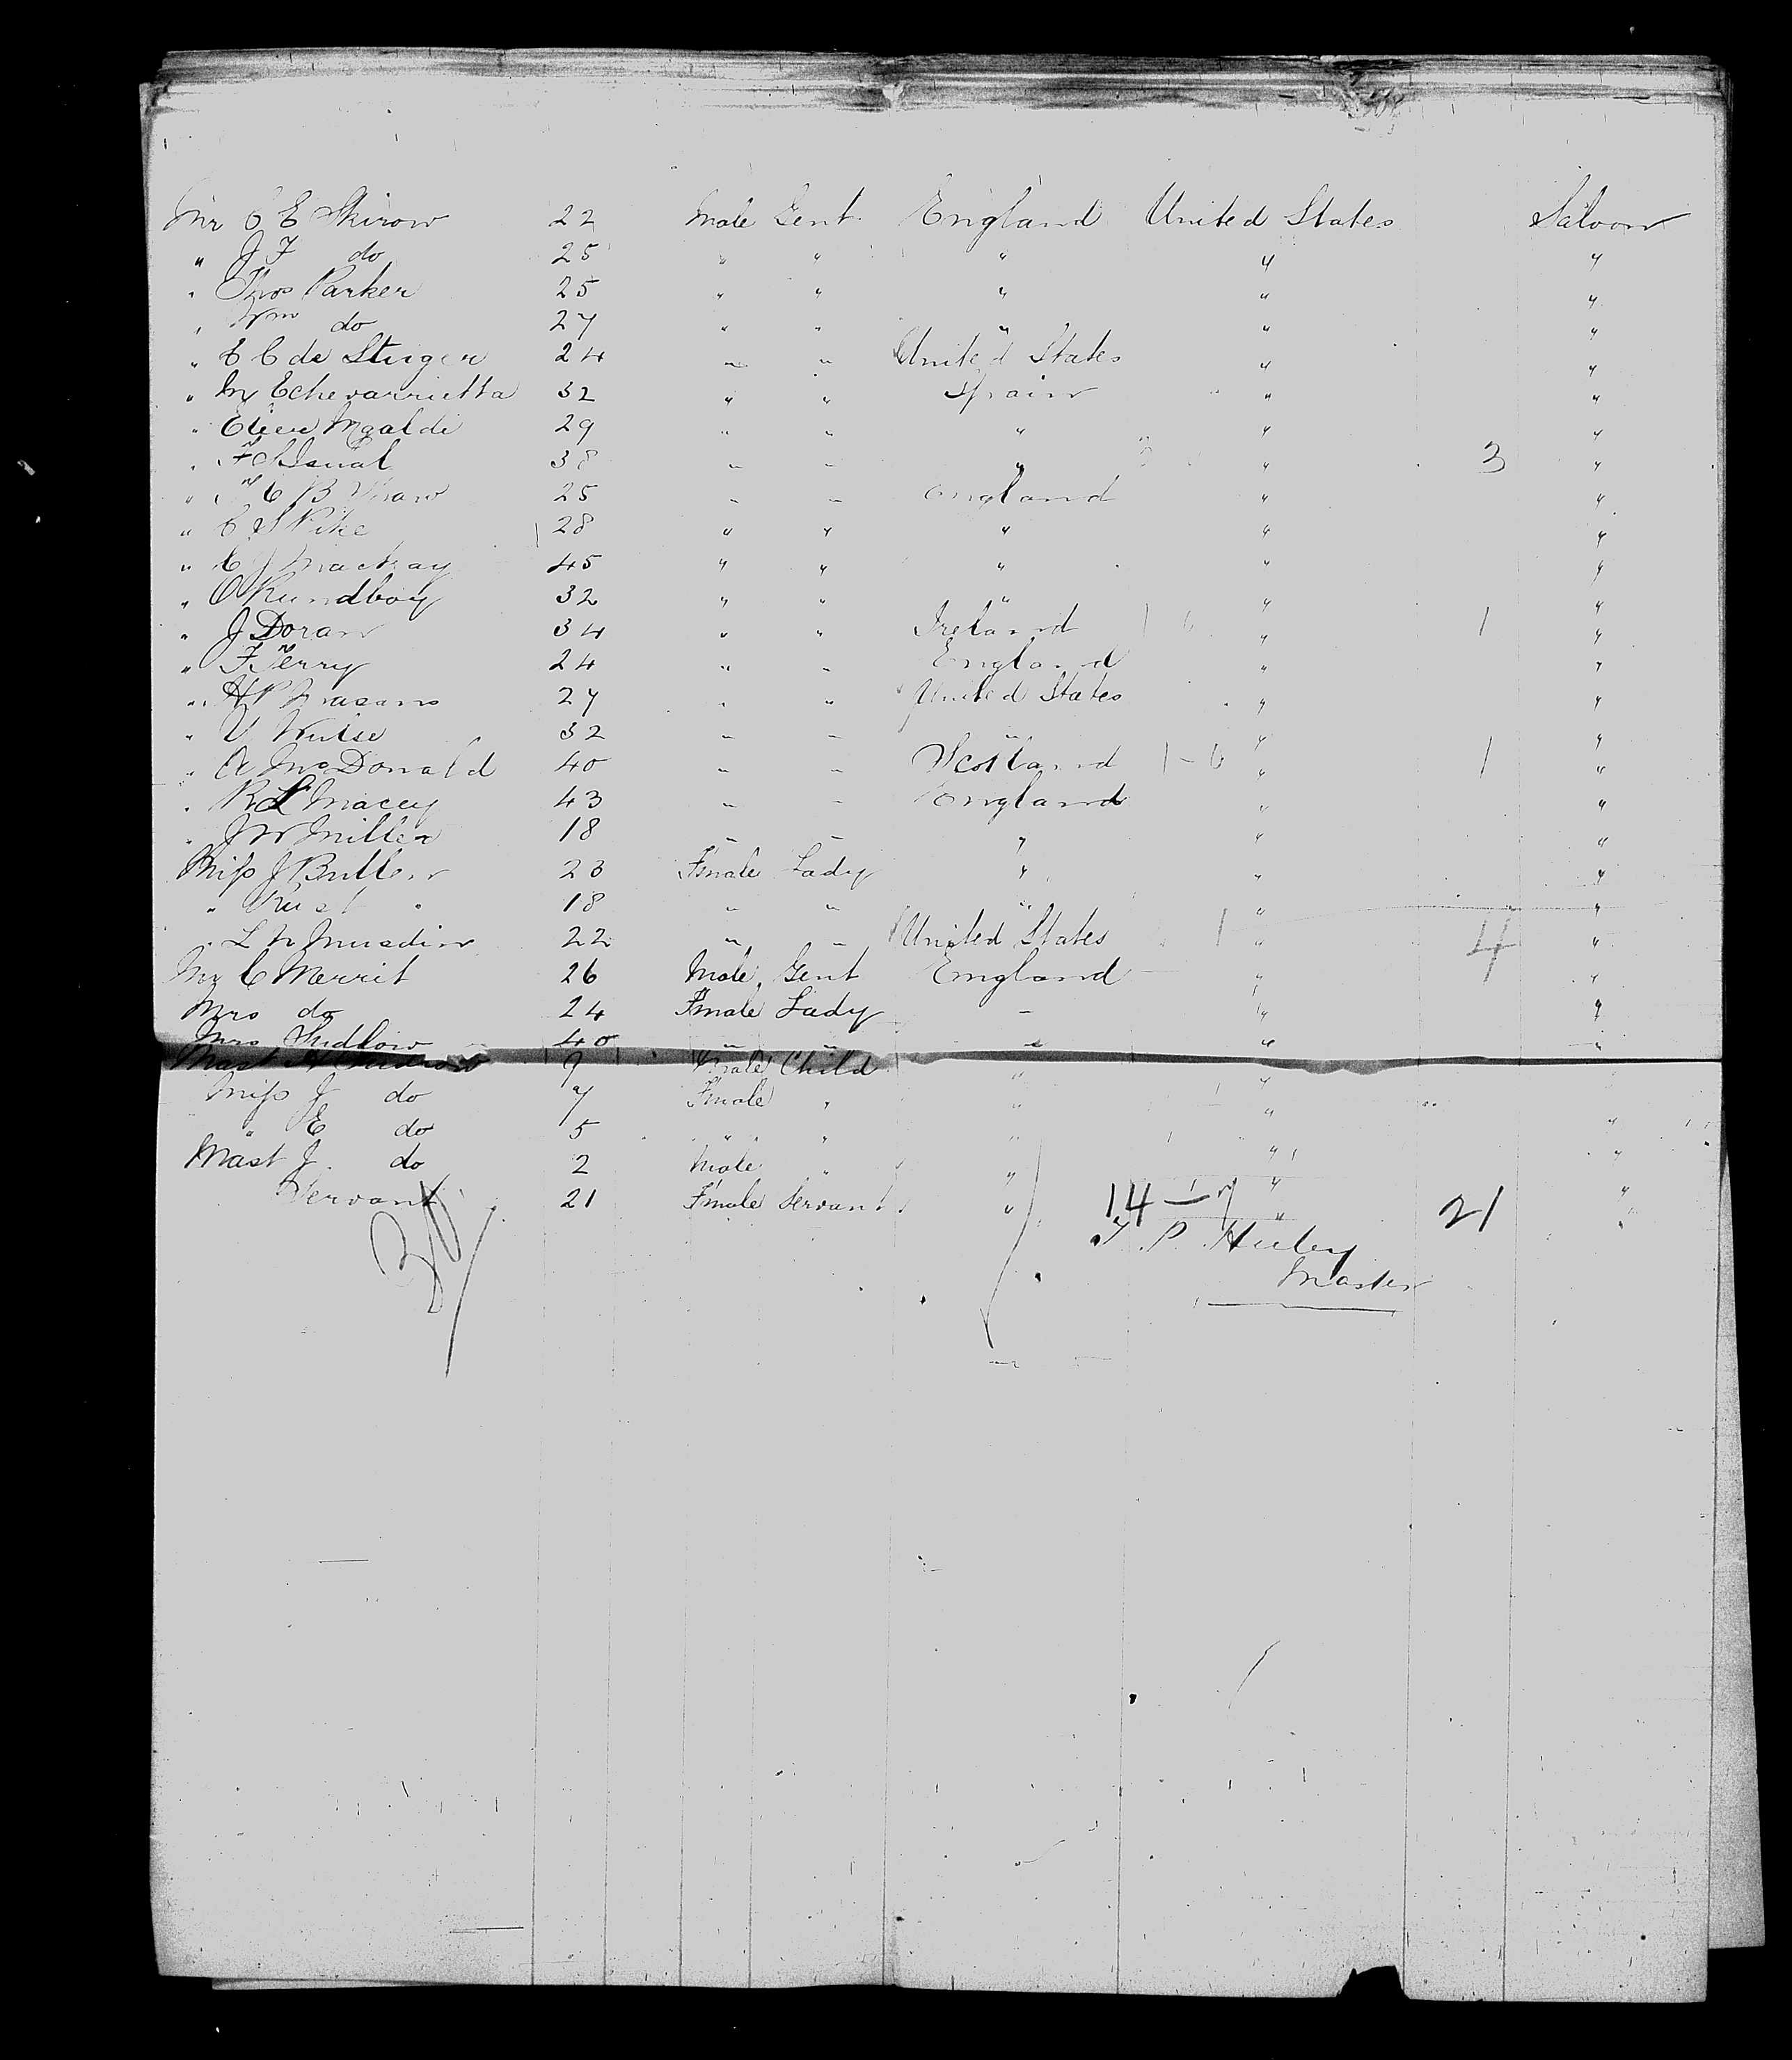 Mr C E Skirow 22 Male Gent England United States Saloon
" J F do 25 " " " " "
" Thos Parker 25 " " " " "
" Wm do 27 " " " " "
" E C de Stuger 24 " " United States " "
" M Echevarrietta 32 " " Spain " "
" 29 " " " " "
" 38 " " " " 3 "
" C B 25 " " England " "
" C S Pike 28 " " " " "
" C J Mackay 45 " " " " "
" O Rundboy 32 " " " " "
" J Doran 34 " " Ireland " 1 "
" F Terry 24 " " England " "
" H P 27 " " United States " "
" V 32 " " " " "
" A McDonald 40 " " Scotland 1-6 " 1 "
" R L Macey 43 " " England " "
" J W Miller 18 " " " " "
Miss J Butler 23 Fmale Lady " " "
" Rust " 18 " " " " "
" L N 22 " " United States 1 " 4 "
Mr C Merrit 26 Male Gent England " "
Mrs do 24 Fmale Lady " " "
Mrs Ludlow 40 " " " " "
Mast 9 Male Child " "
Miss J do 7 Fmale " " " "
" E do 5 " " " " "
Mast J. do 2 Male " " " "
Servant 21 Fmale Servant " 14-7 " 21 "
30
Master